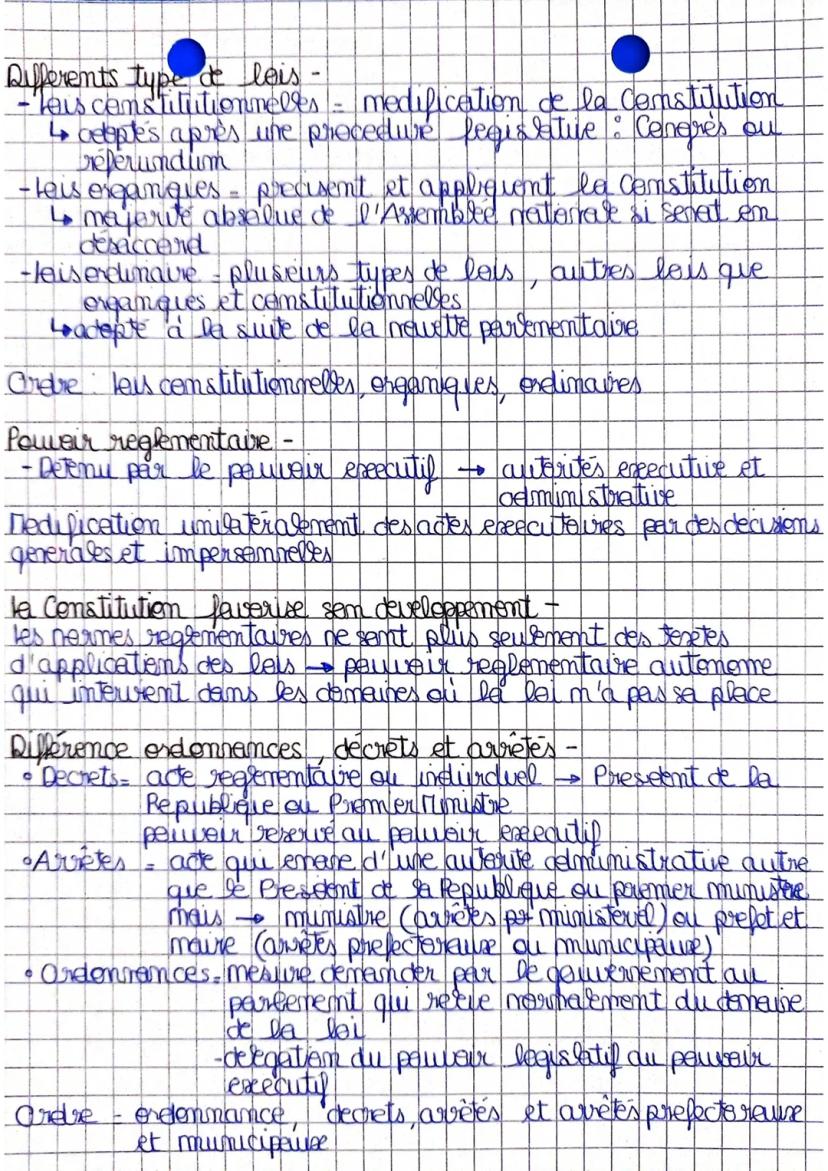 Differents type de lois -
- lois constitutionnelles = modification de la Constitution
↳ adoptés après une procedure legislative : Congrès ou
réferundum
- lois organiques = precisent et appliquent la Constitution
↳ majorité absolue de l'Assemblée nationale si senat en
désaccord
- lois ordinaire = plusieurs types de lois, autres lois que
organiques et constitutionnelles
↳ adopté à la suite de la navette parlementaire
Ordre : lois constitutionnelles, organiques, ordinaires
Pouvoir reglementaire -
- Detenu par le pouvoir executif → autorités executive et
administrative
Modification unilatéralement des actes executoires par des decisions
generales et impersonnelles
la Constitution favorise son developpement -
les normes reglementaires ne sont plus seulement des textes
d'applications des lois → pouvoir reglementaire autonome
qui intervient dans les domaines où la loi n'a pas sa place
Différence ordonnances, décrets et arrêtés -
• Decrets = acte reglementaire ou individuel → President de la
Republique ou Premier Ministre
pouvoir reservé au pouvoir executif
• Arrêtes = acte qui emane d'une autorite administrative autre
que le President de la Republique ou premier ministre
mais → ministre (arrêtes ministeriel) ou prefet et
maire (arrêtes prefectoreaux ou municipaux)
• Ordonnances = mesure demander par le gouvernement au
parlement qui releve normalement du domaine
de la loi
- delegation du pouvoir legislatif au pouvoir
executif
Ordre - ordonnance, decrets, arrêtés et arrêtés prefectoreaux
et municipaux